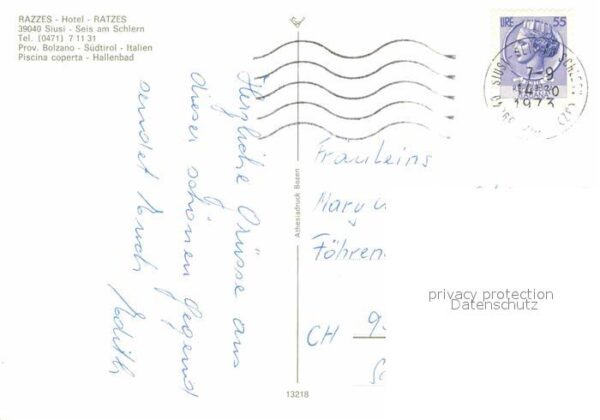 RAZZES - Hotel - RATZES
39040 Siusi - Seis am Schlern
Tel. (0471) 7 11 31
Prov. Bolzano - Südtirol - Italien
Piscina coperta - Hallenbad
LIRE 55
7-9
1973
Herzliche Grüsse aus
dieser schönen Gegend
sendet Euch Edith
Athesiadruck Bozen
Fräuleins
Mary u
Föhren
CH 9
13218
privacy protection
Datenschutz